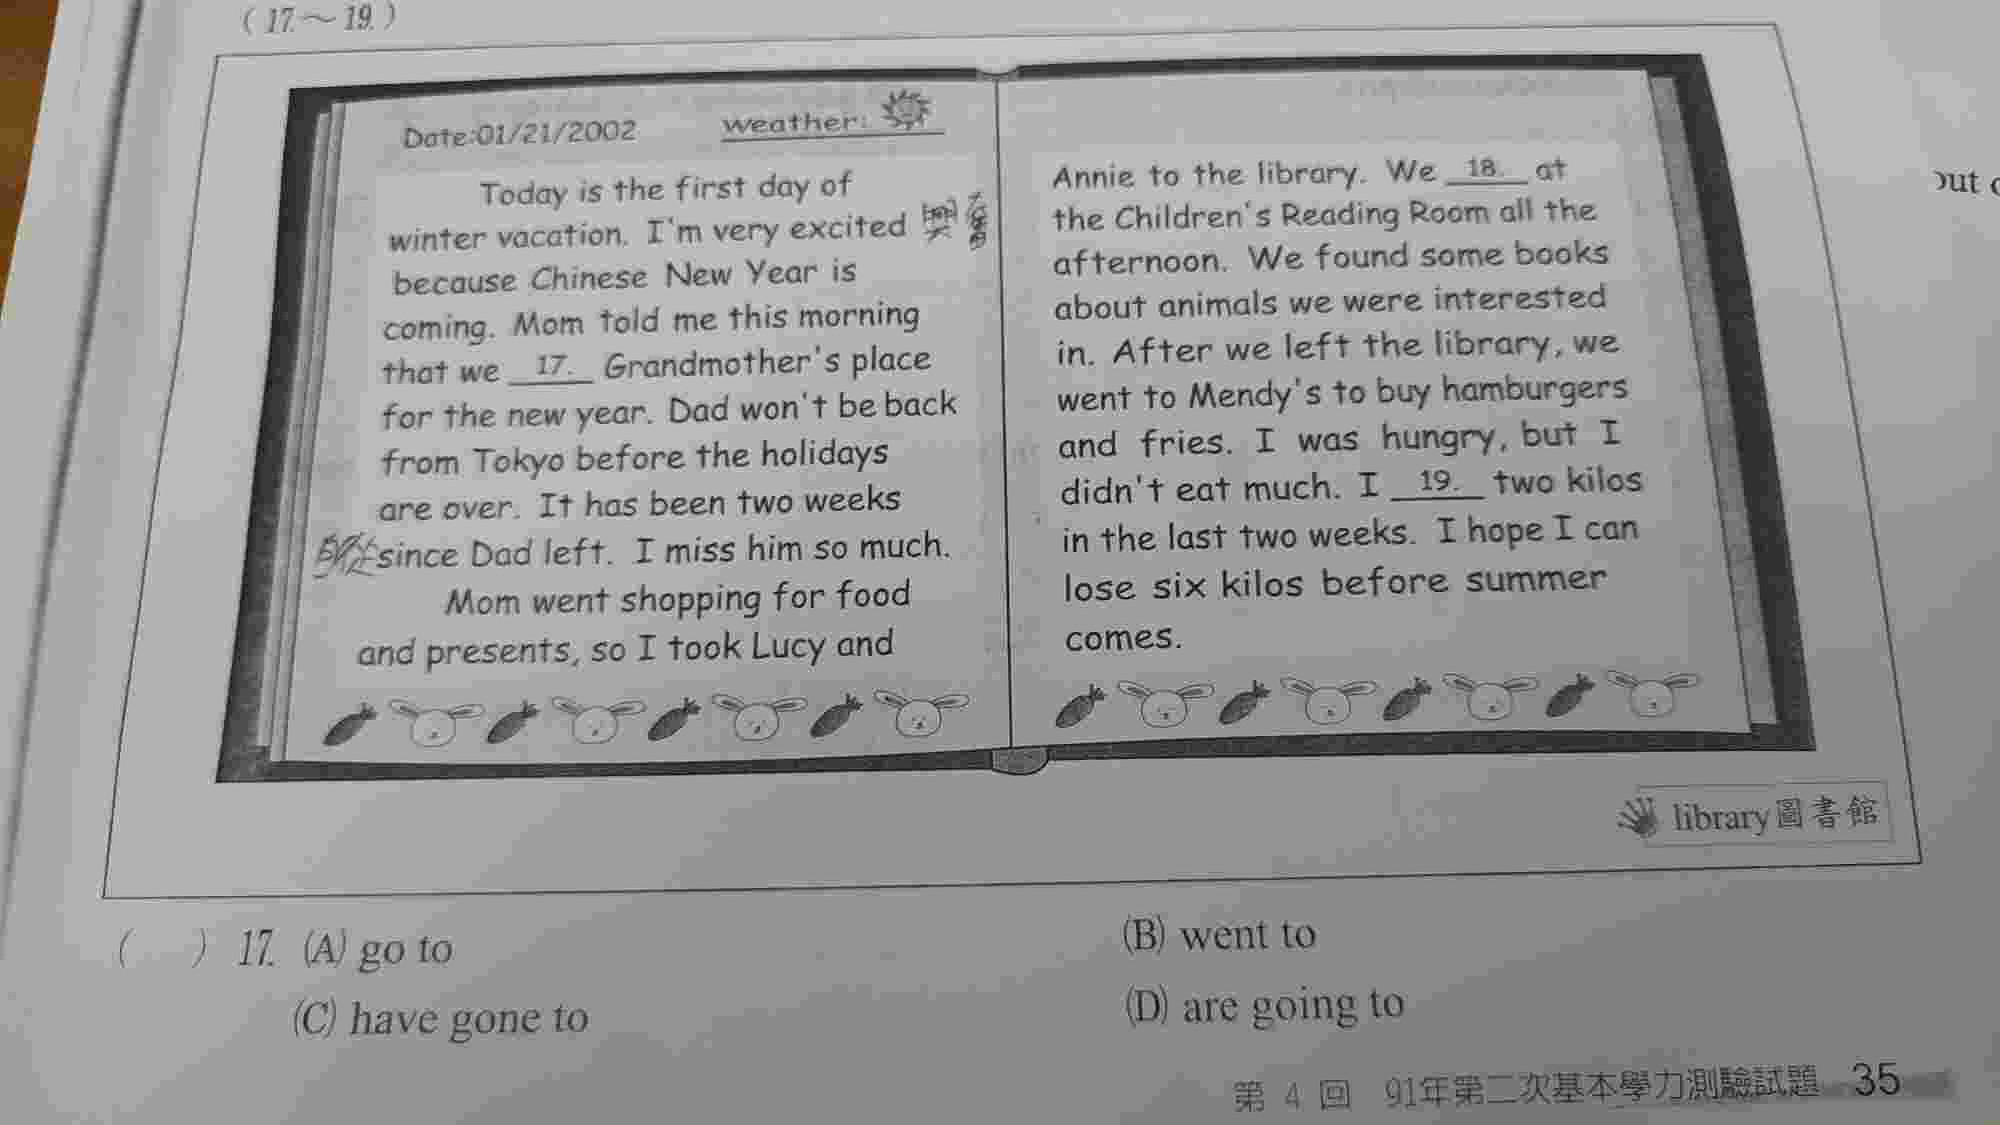 ( 17.～19. )
Date:01/21/2002 weather:
Today is the first day of
winter vacation. I'm very excited
because Chinese New Year is
coming. Mom told me this morning
that we 17. Grandmother's place
for the new year. Dad won't be back
from Tokyo before the holidays
are over. It has been two weeks
since Dad left. I miss him so much.
Mom went shopping for food
and presents, so I took Lucy and
Annie to the library. We 18. at
the Children's Reading Room all the
afternoon. We found some books
about animals we were interested
in. After we left the library, we
went to Mendy's to buy hamburgers
and fries. I was hungry, but I
didn't eat much. I 19. two kilos
in the last two weeks. I hope I can
lose six kilos before summer
comes.
library 圖書館
( ) 17. (A) go to (B) went to
(C) have gone to (D) are going to
第 4 回 91年第二次基本學力測驗試題 35